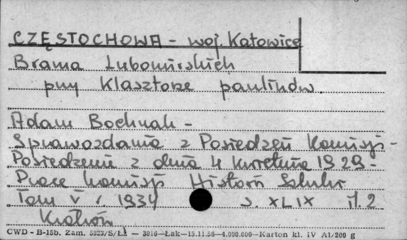 CZĘSTOCHOWA - woj. Katowice
Brama Lubomirskich
przy klasztorze paulinów.
Adam Bochnak -
Sprawozdania z Posiedzeń Komisji -
Posiedzenie z dnia 4 kwietnia 1929 -
Prace Komisji Historii Sztuki
Tom V, 1934 s. XLIX il. 2
Kraków
CWD - B-15b. Zam. Łak - 13.11.56 - 4.000.000 - Karton kl. IV A1/200 g